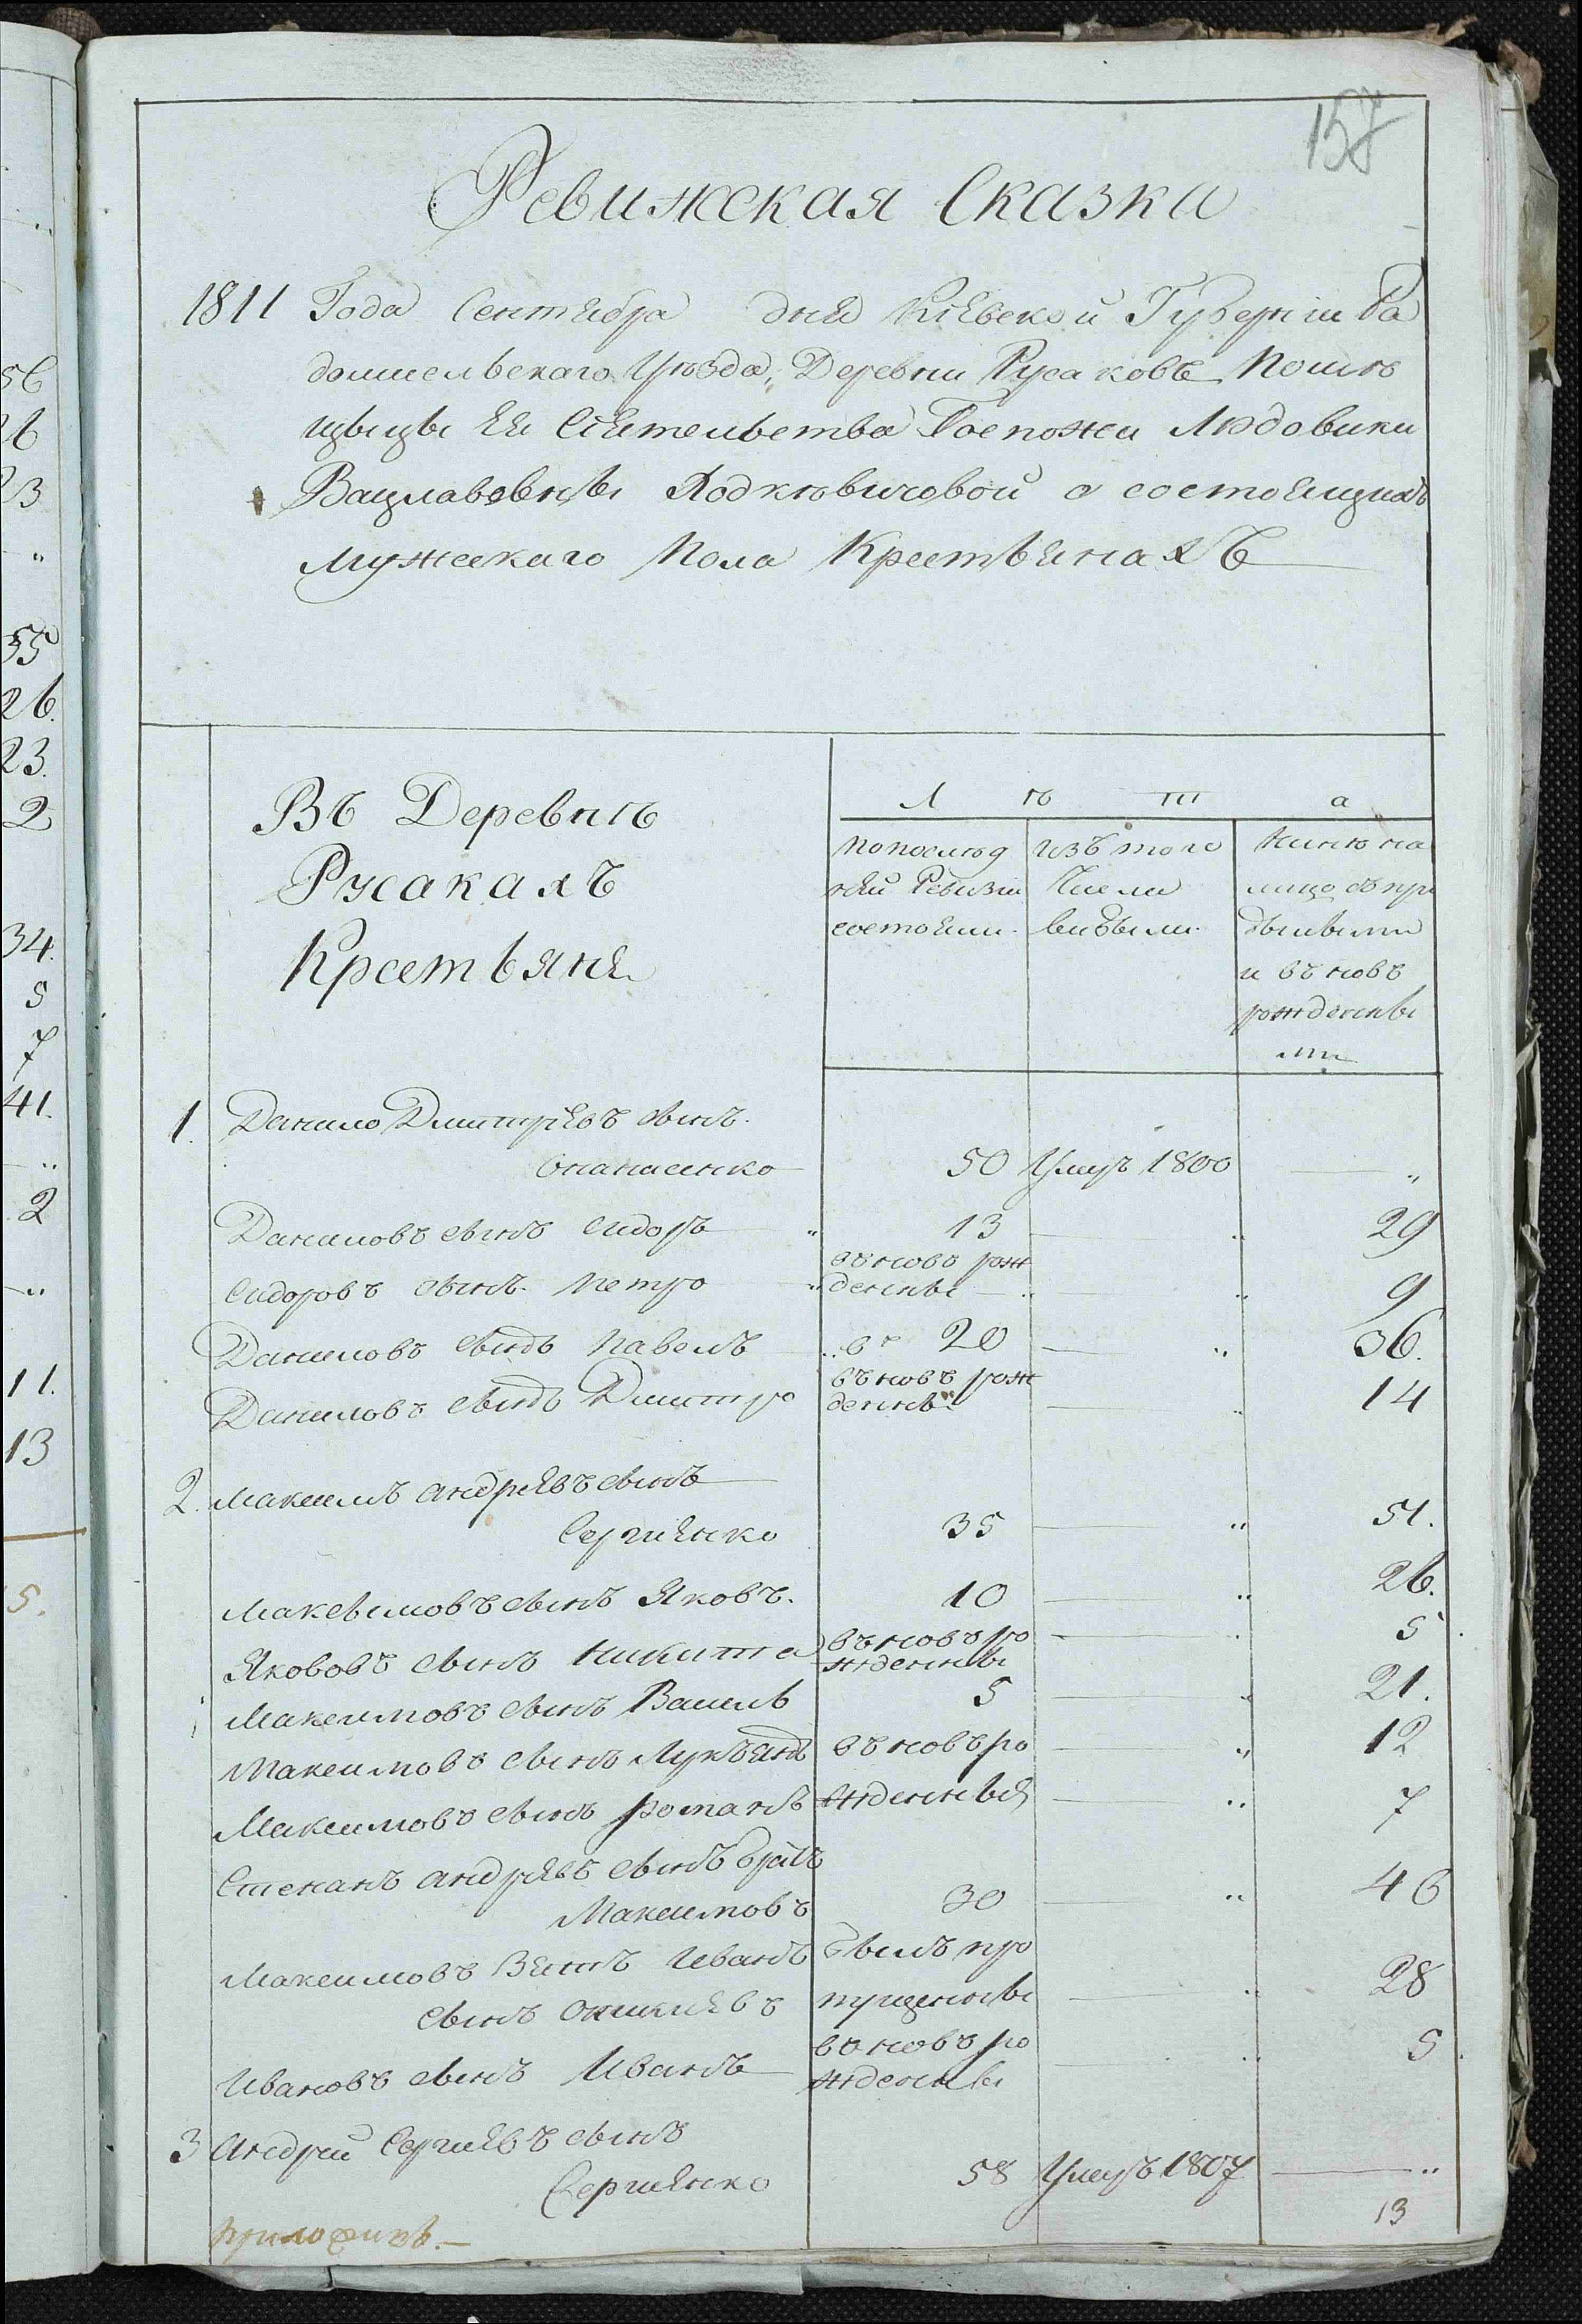 157
Ревижская Сказка
1811 Года Сентября дня Кіевской Губерніи Ра
домысльскаго Уѣзда, Деревни Русаковъ Помѣ
щыцы Ея Сіятельства Госпожи Людовики
Вацлавовны Ходкѣвичовой о состоящихъ
Мужескаго Пола Крестьянахъ
Въ Деревнѣ
Русакахъ
Крестьяня
Л ѣ т а
Попослѣд
няй Ревизіи
состояли.
Изъ того
Числа
выбыли.
Нинѣ на
лицо съ при
былыми
и въ новъ
рожденны
ми
1. Данило Дмитріявъ сынъ.
Опанасенко 50 Умеръ 1800 "
Даниловъ сынъ Сидоръ " 13 " 29
Сидоровъ сынъ Петро " въ новъ рож
денны " 9
Даниловъ сынъ Павелъ 20 " 36.
Даниловъ сынъ Дмитро въ новъ рож
денны " 14
2. Максимъ Андріявъ сынъ
Сергіянко 35 " 51.
Максымовъ сынъ Яковъ. 10 " 26.
Якововъ сынъ Никита въ новъ ро
жденны " 5
Максимовъ сынъ Василь 5 " 21.
Максимовъ сынъ Лукъянъ въ новъ ро " 12
Максимовъ сынъ Романъ жденныя " 7
Степанъ Андріявъ сынъ братъ
Максимовъ 30 " 46
Максимовъ Зять Иванъ былъ про
сынъ пущенны " 28
Ивановъ сынъ Иванъ въ новъ ро
жденны " 5
3 Андрей Сергіявъ сынъ
Сергіянко 58 Умеръ 1807 "
13
56
26
23
"
55
26.
23.
2
34.
5
7
41.
"
2
"
11.
13
5.